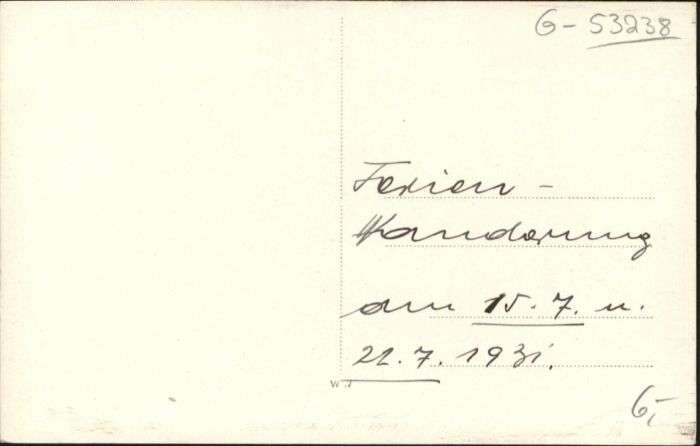 G-53238
Ferien-
Wanderung
am 15.7. u.
21.7.1931.
6,-